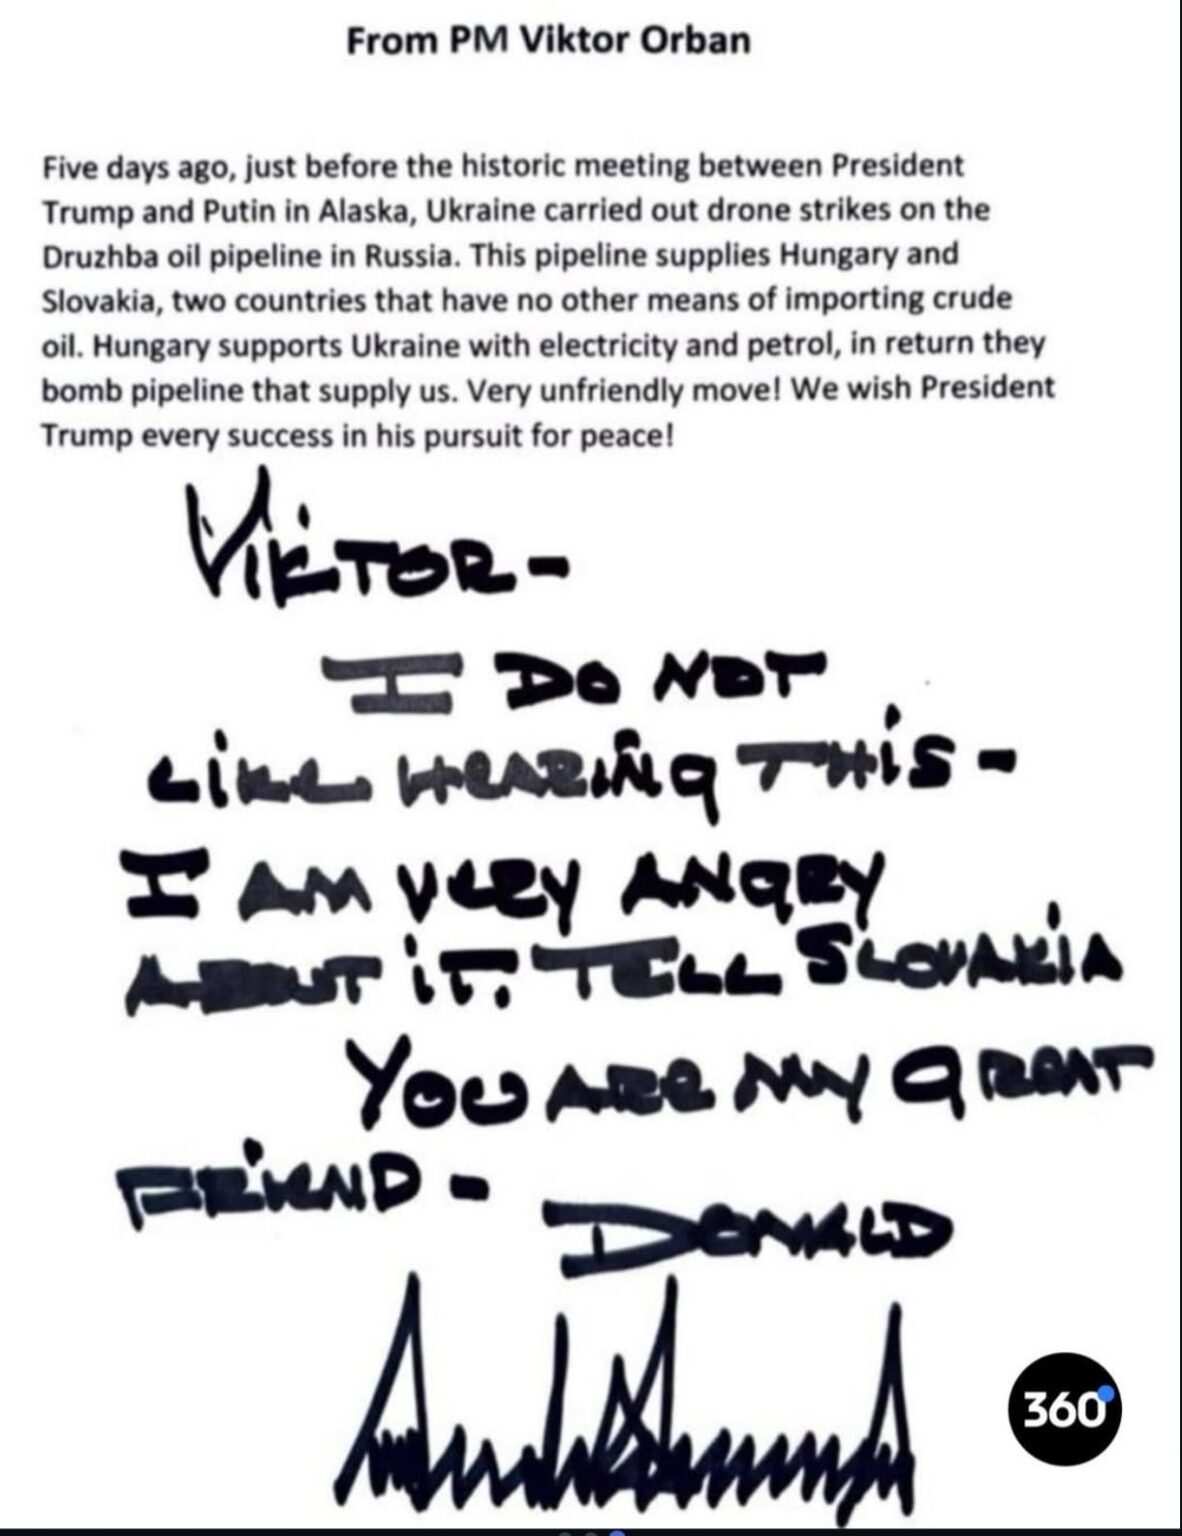 From PM Viktor Orban
Five days ago, just before the historic meeting between President
Trump and Putin in Alaska, Ukraine carried out drone strikes on the
Druzhba oil pipeline in Russia. This pipeline supplies Hungary and
Slovakia, two countries that have no other means of importing crude
oil. Hungary supports Ukraine with electricity and petrol, in return they
bomb pipeline that supply us. Very unfriendly move! We wish President
Trump every success in his pursuit for peace!
VIKTOR -
I DO NOT
LIKE HEARING THIS -
I AM VERY ANGRY
ABOUT IT. TELL SLOVAKIA
YOU ARE MY GREAT
FRIEND - 
DONALD
360